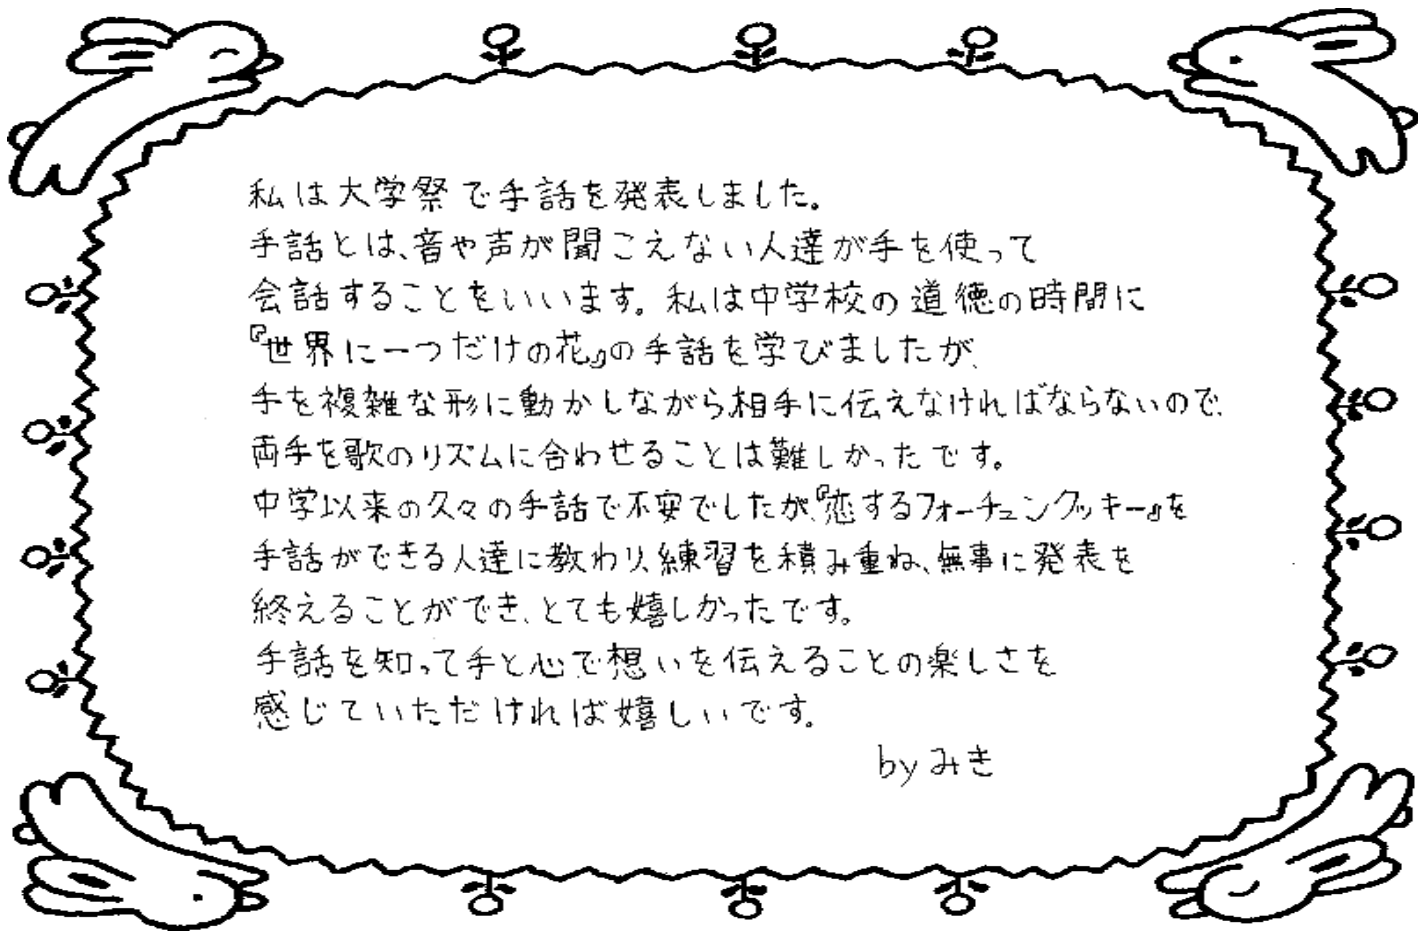 私は大学祭で手話を発表しました。
手話とは、音や声が聞こえない人達が手を使って
会話することをいいます。私は中学校の道徳の時間に
『世界に一つだけの花』の手話を学びましたが、
手を複雑な形に動かしながら相手に伝えなければならないので、
両手を歌のリズムに合わせることは難しかったです。
中学以来の久々の手話で不安でしたが、『恋するフォーチュンクッキー』を
手話ができる人達に教わり、練習を積み重ね、無事に発表を
終えることができ、とても嬉しかったです。
手話を知って手と心で想いを伝えることの楽しさを
感じていただければ嬉しいです。
by みき